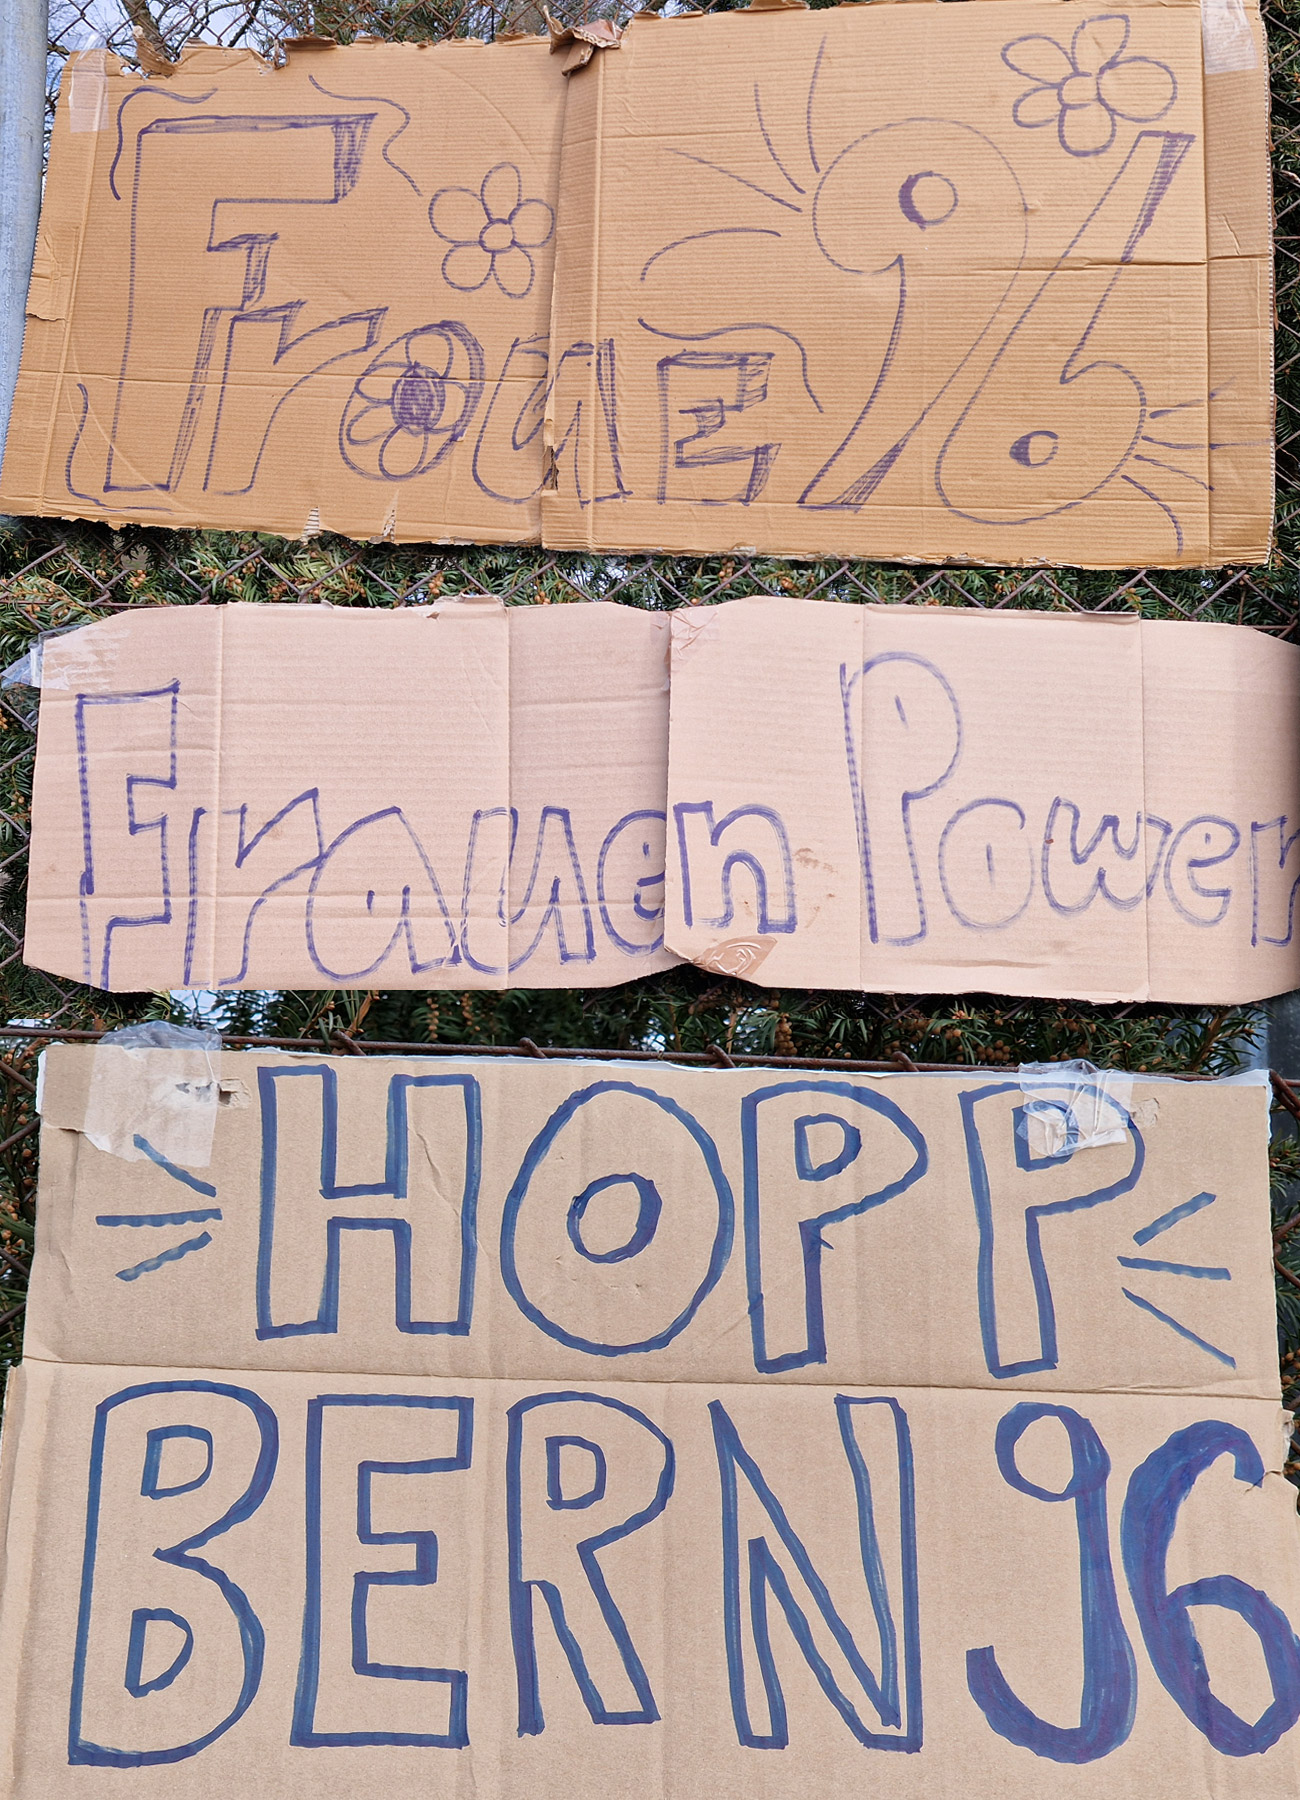 FrouE 96
Frauen Power
HOPP
BERN 96